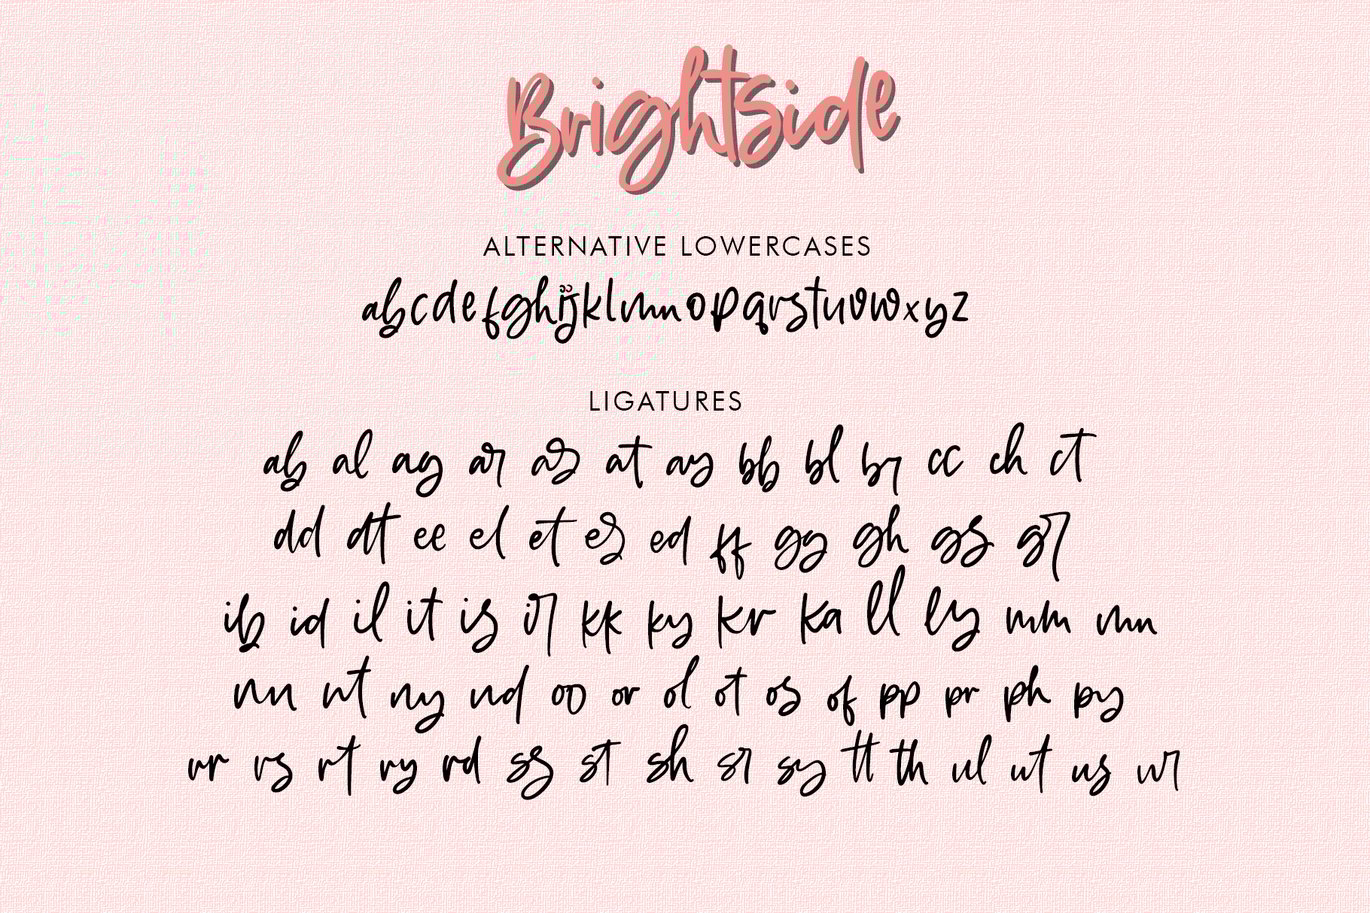 Brightside
ALTERNATIVE LOWERCASES
abcdefghijklmnopqrstuvwxyz
LIGATURES
ab al ag ar as at ay bb bl br cc ch ct
dd dt ee el et es ed ff gg gh gs gr
ib id il it is ir kk ky kr ka ll ly mm mn
nn nt ny nd oo or ol ot os of pp pr ph py
rr rs rt ry rd ss st sh sr sy tt th ul ut us ur